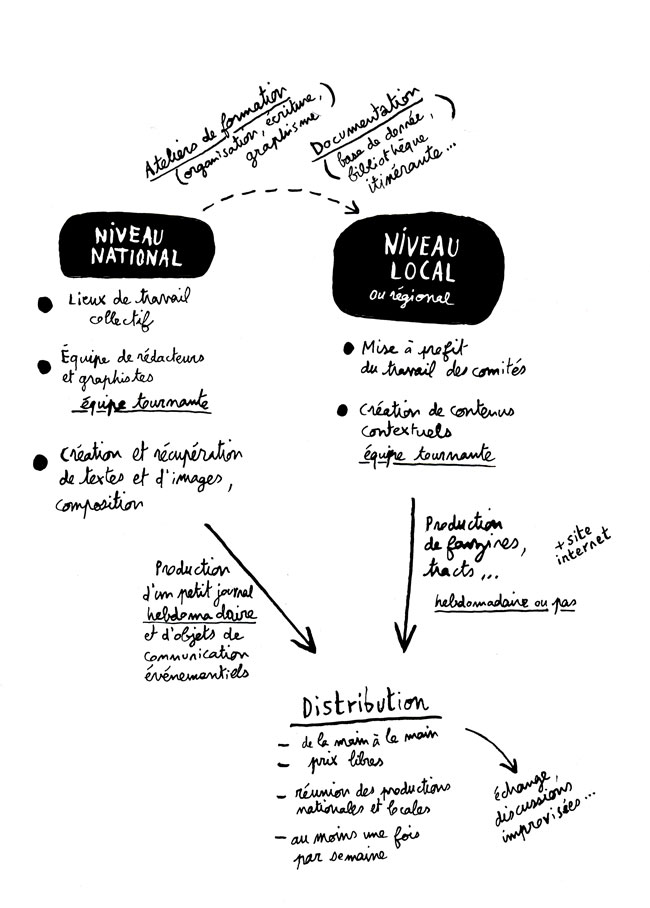 Ateliers de formation
(organisation, écriture,
graphisme)
Documentation
(base de donnée,
bibliothèque
itinérante...)
NIVEAU
NATIONAL
Lieux de travail
collectif
Équipe de rédacteurs
et graphistes
équipe tournante
Création et récupération
de textes et d'images,
composition
NIVEAU
LOCAL
ou régional
Mise à profit
du travail des comités
Création de contenus
contextuels
équipe tournante
Production
d'un petit journal
hebdomadaire
et d'objets de
communication
événementiels
Production
de fanzines,
tracts...
hebdomadaire ou pas
+ site
internet
Distribution
- de la main à la main
- prix libres
- réunion des productions
nationales et locales
- au moins une fois
par semaine
échange,
discussions
improvisées...